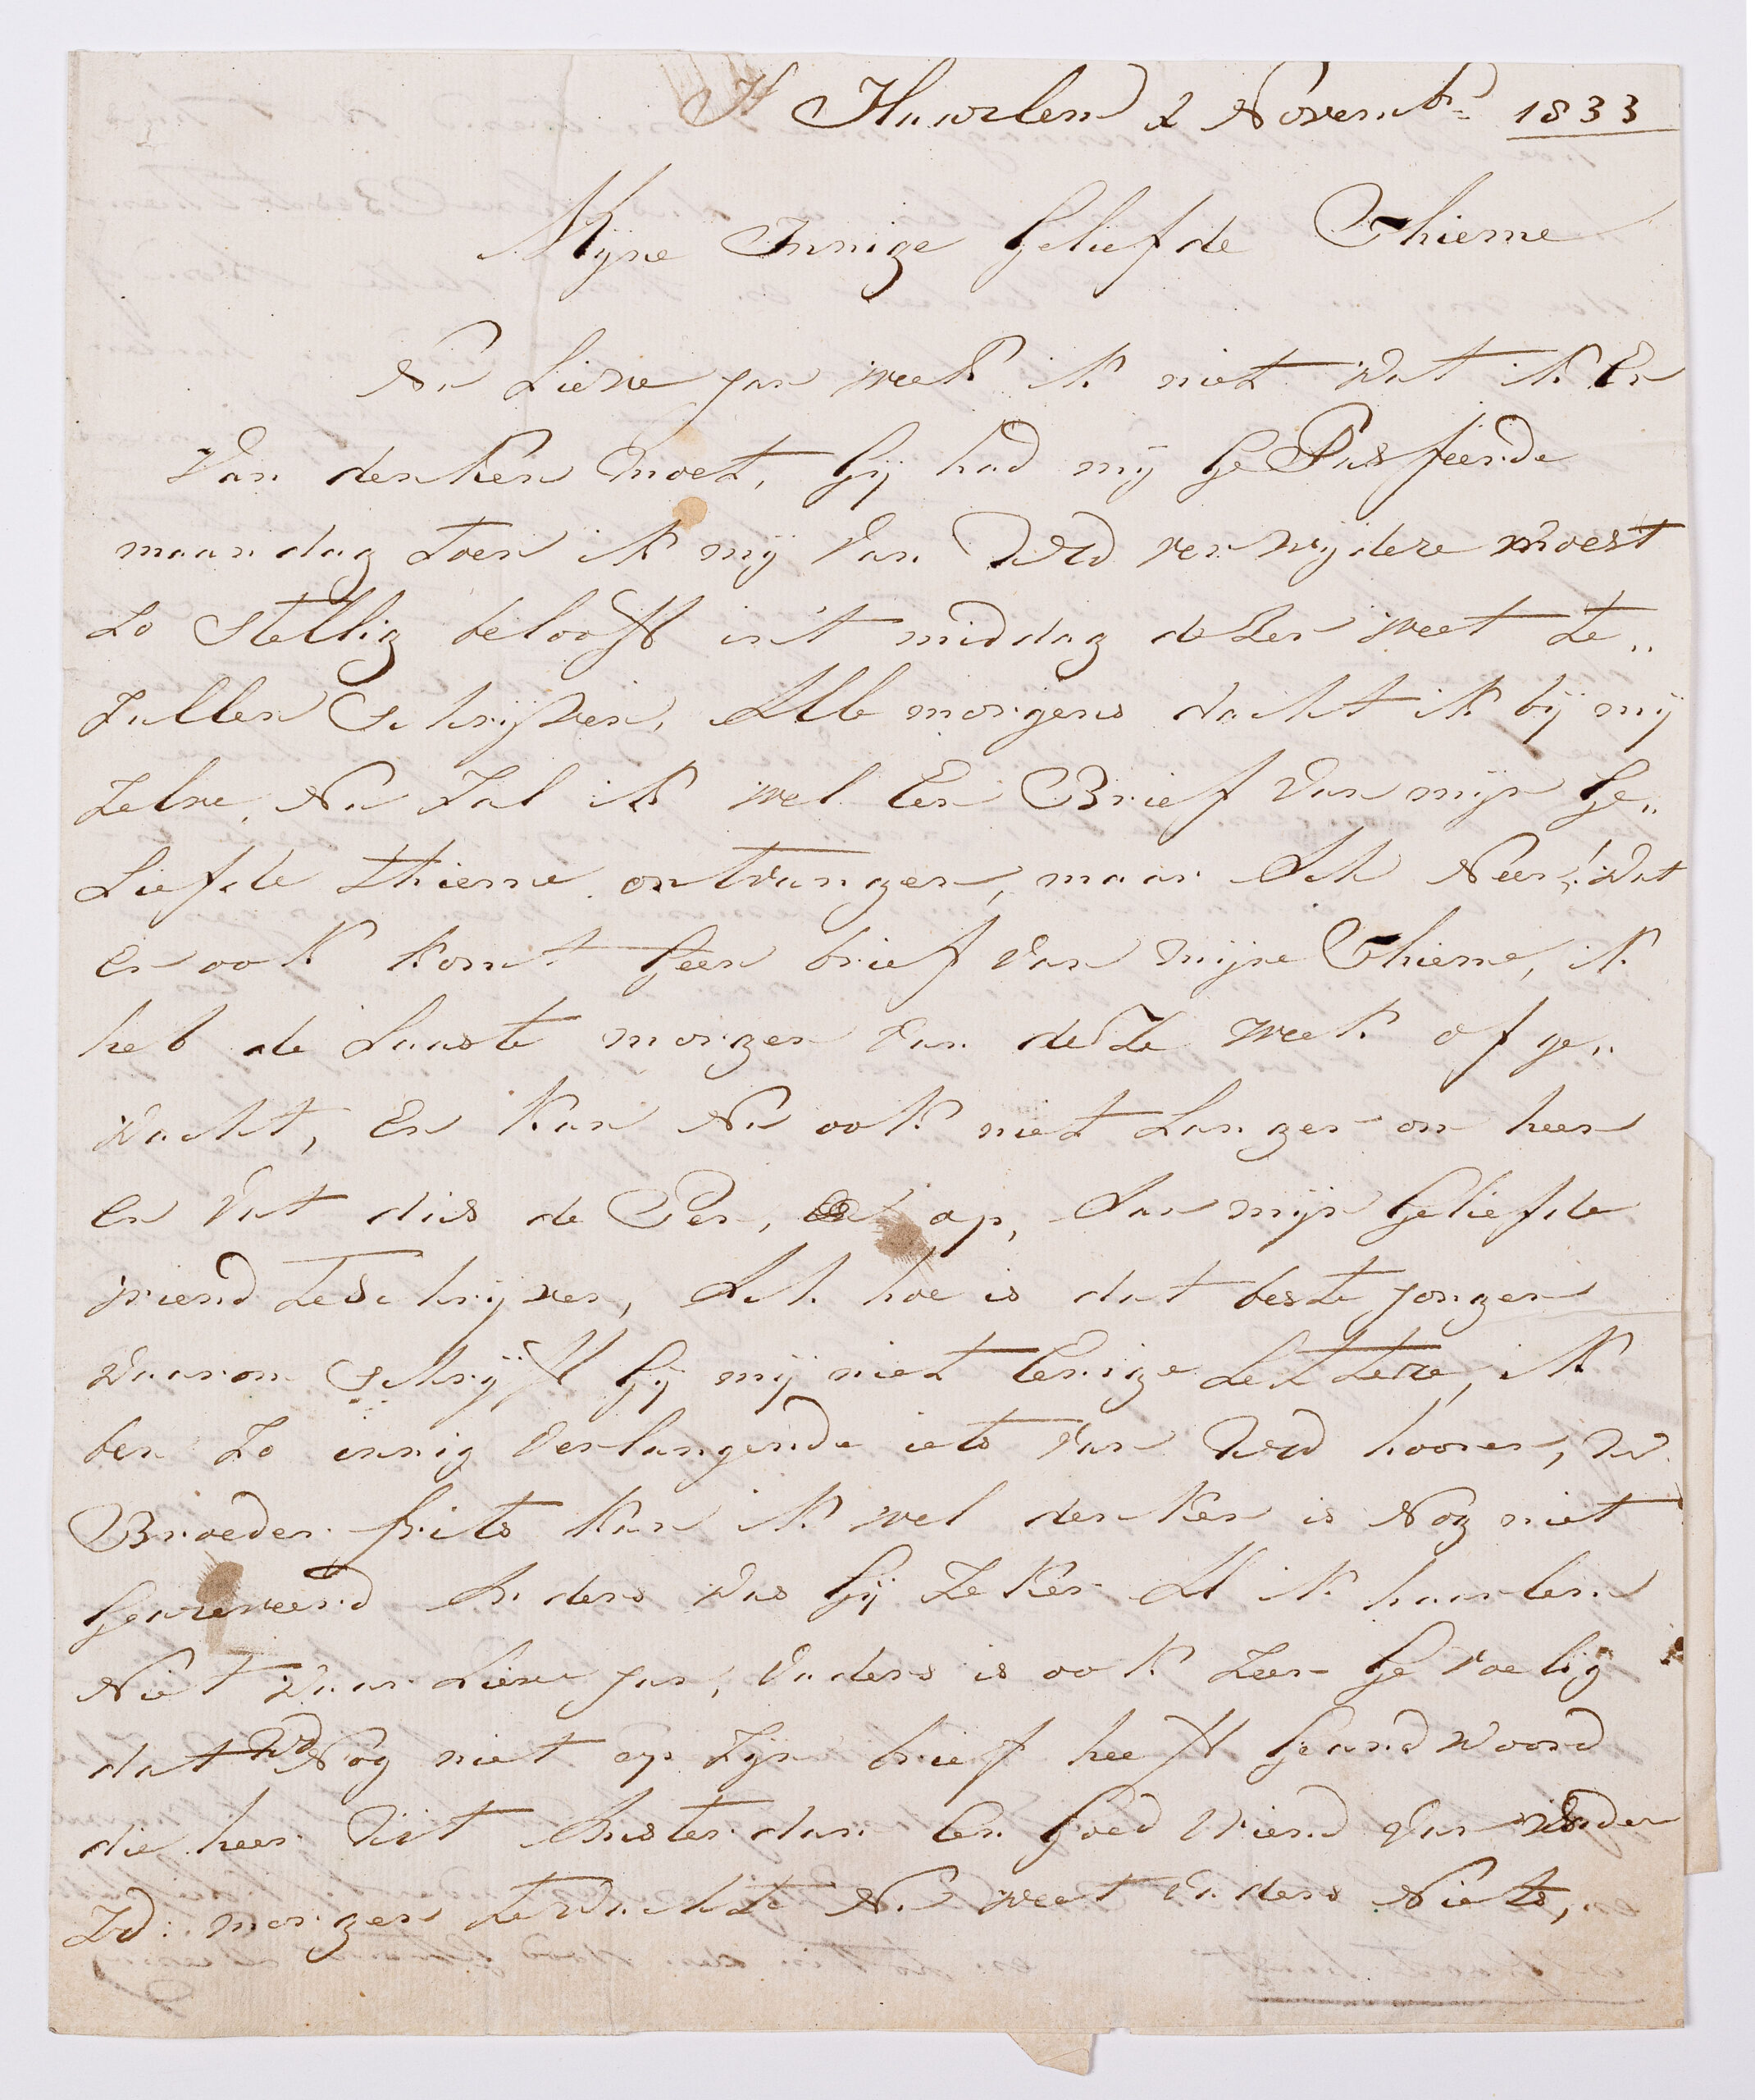 Haarlem 2 Novemb.r 1833
Mijne Innige Geliefde Thieme
Nu Lieve jan weet ik niet Wat ik Er
Van denken moet, Gij had mij GePasseerde
maandag toen ik mij Van UEd verwijdere moest
Zo Stellig belooft in't midden dezer weet te"
Zullen Schrijven, Alle morgens dacht ik bij mij
Zelve, Nu Zal ik wel Een Brief Van mijn Ge"
Liefde thieme ontvangen, maar Ach Neen! Wat
er ook komt Geen brief Van mijne Thieme, ik
heb de Laaste morgen Van deZe week afge"
Wacht, En kan Nu ook niet Langer om heen
en Vat dus de Pen, op, Aan mijn Geliefde
vriend teSchrijven, Ach hoe is dat beste jongen
Waarom Schrijft Gij mij niet Eenige Lettere, ik
ben Zo innig Verlangende iets Van UEd hooren, Uw
Broeder frits kan ik wel denken is Nog niet
Geareveerd Anders Was Gij Zeker Al ik haarlem
Niet Waar Lieve jan, Vaders is ook Zeer Gevoelig
dat UEd Nog niet op Zijn brief heeft Geandwoord
die heer Uit Amsterdam Een Goed Vriend Van Vader
Zd: morgen teWachte Nu weet Vaders Niets,